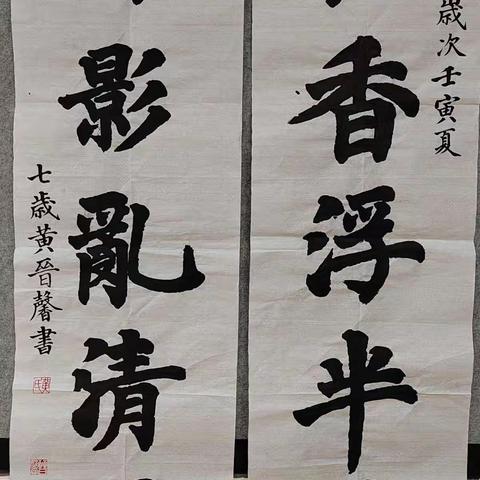 歲次壬寅夏
香浮半
影亂清
七歲黄晉馨書